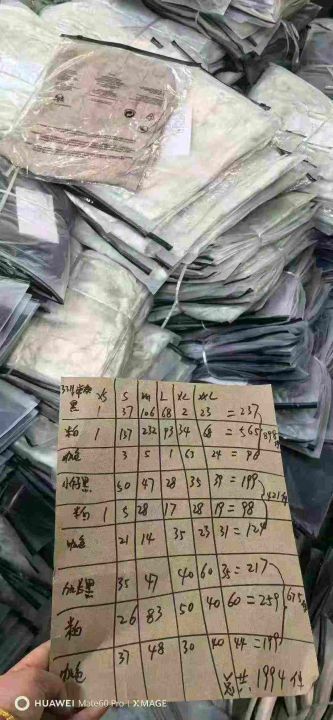 XS S M L XL XXL
黑 1 37 106 68 2 23 = 237
粉 1 137 232 93 34 68 = 565
咖色 3 5 1 63 24 = 96
898件
黑 50 47 28 35 39 = 199
粉 1 5 28 17 28 19 = 98
咖色 21 14 35 23 31 = 124
421件
黑 35 47 40 60 35 = 217
粉 26 83 50 40 60 = 259
咖色 37 48 30 40 44 = 199
675件
总共 1994件
HUAWEI Mate60 Pro | XMAGE